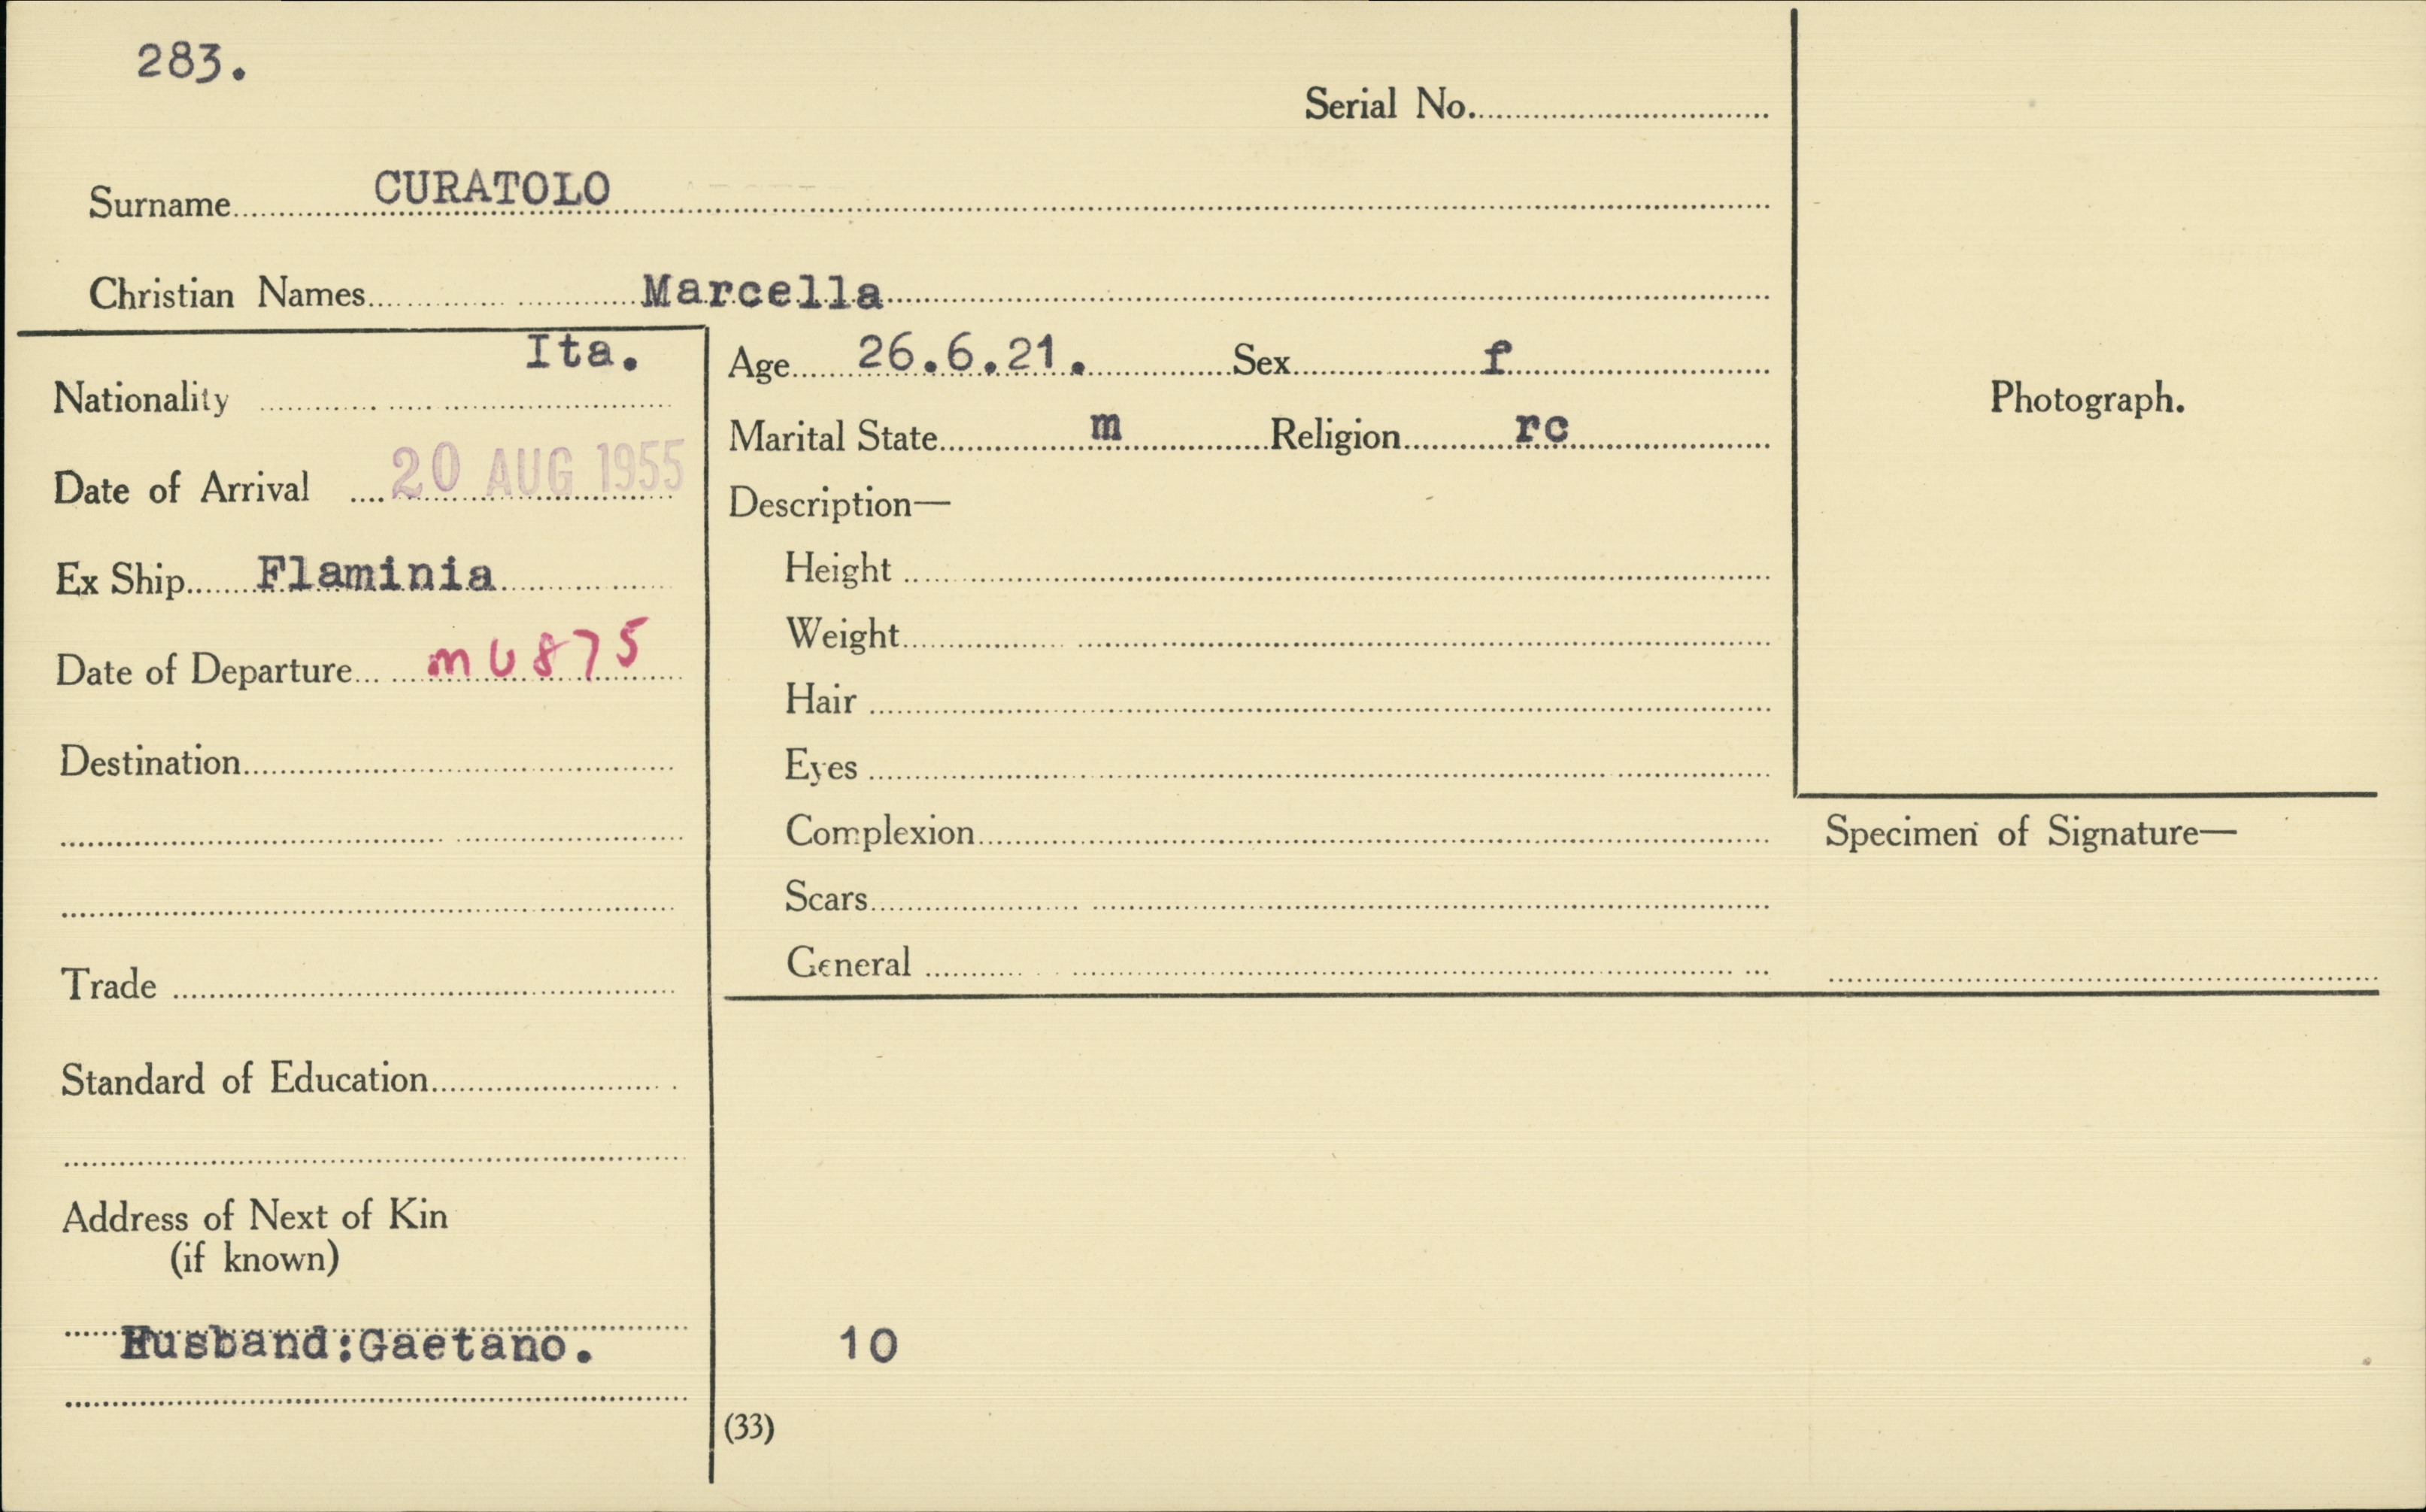 283.
Serial No.
Surname CURATOLO
Christian Names Marcella
Nationality Ita.
Date of Arrival 20 AUG 1955
Ex Ship Flaminia
Date of Departure m U 875
Destination
Trade
Standard of Education
Address of Next of Kin
(if known)
Husband:Gaetano.
Age 26.6.21. Sex f
Marital State m Religion rc
Description—
Height
Weight
Hair
Eyes
Complexion
Scars
General
10
(33)
Photograph.
Specimen of Signature—